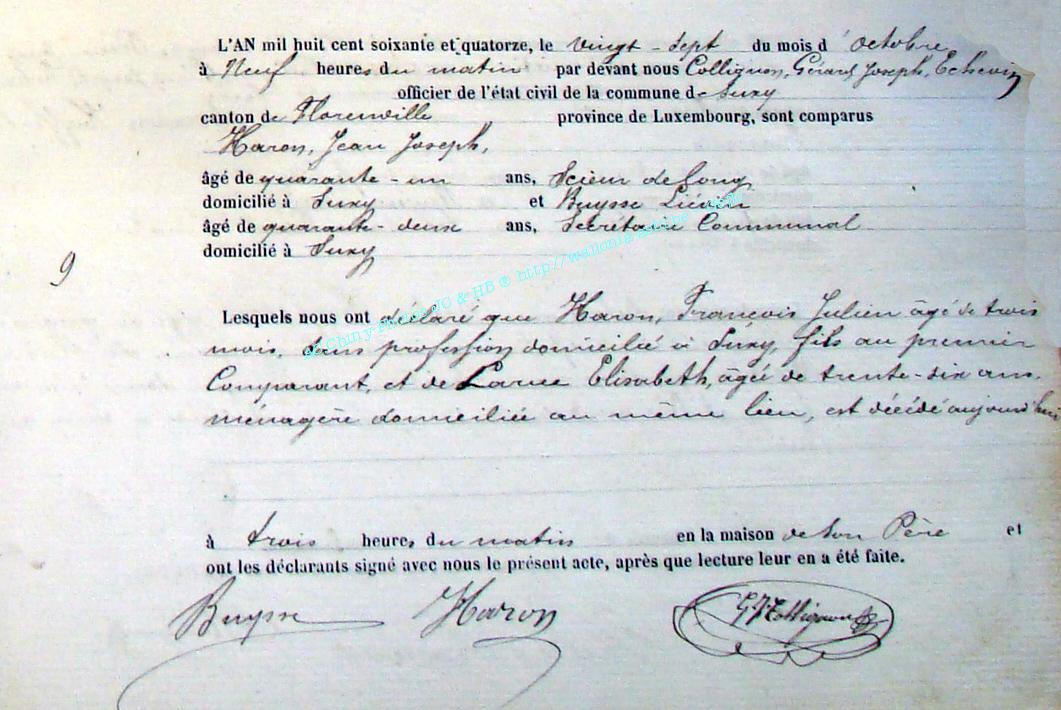 L'AN mil huit cent soixante et quatorze, le vingt-sept du mois d'octobre
à Neuf heures du matin par devant nous Collignon, Gérard Joseph, Echevin
officier de l'état civil de la commune de Suxy
canton de Florenville province de Luxembourg, sont comparus
Haron, Jean Joseph,
âgé de quarante-un ans, Scieur de long
domicilié à Suxy et Buysse Liévin
âgé de quarante-deux ans, Secrétaire Communal
domicilié à Suxy
9
Lesquels nous ont déclaré que Haron, François Julien âgé de trois
mois, sans profession domicilié à Suxy, fils au premier
Comparant, et de Larue Elisabeth, âgée de trente-six ans,
ménagère domiciliée au même lieu, est décédé aujourd'hui
à trois heures du matin en la maison de son Père et
ont les déclarants signé avec nous le présent acte, après que lecture leur en a été faite.
Buysse Haron GJCollignon
Chiny JG & HB ® http://wallonia